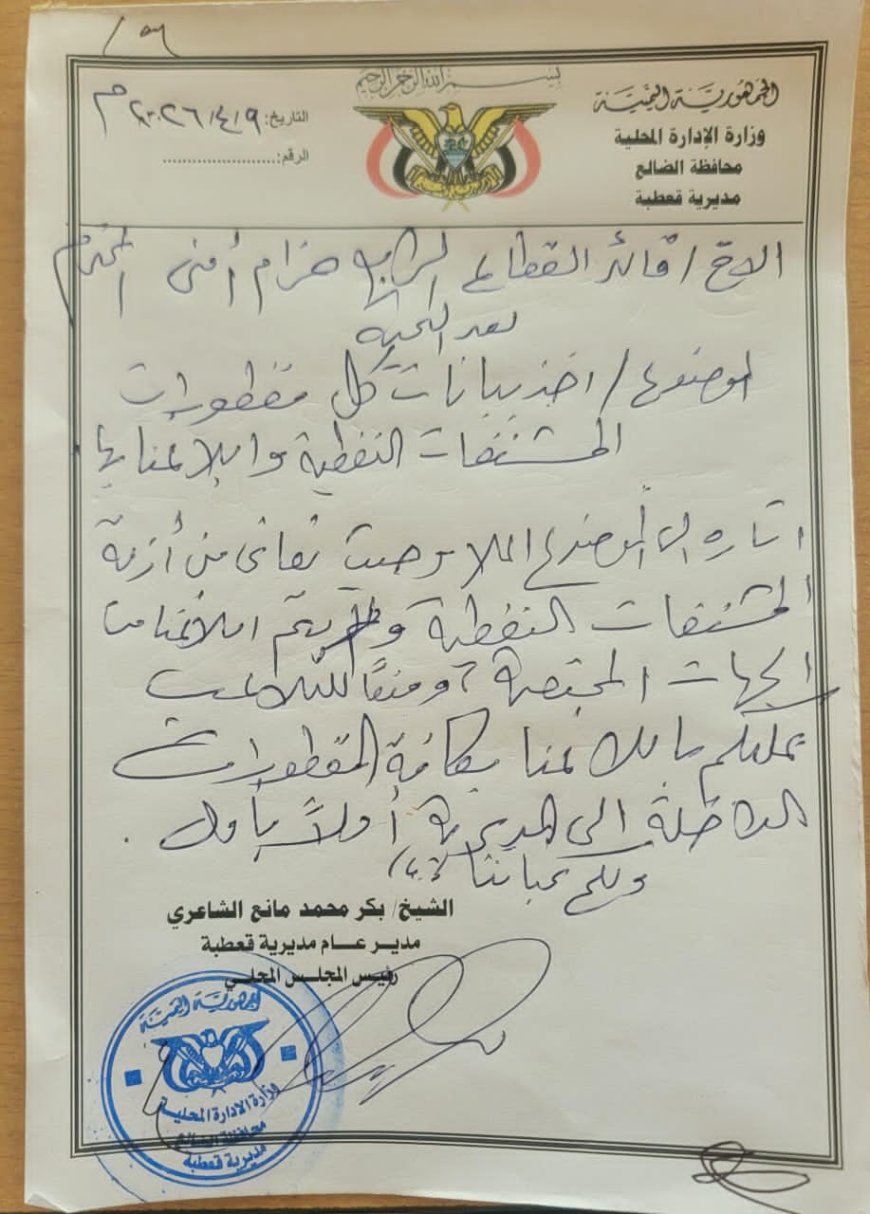 بسم الله الرحمن الرحيم
الجمهورية اليمنية
وزارة الإدارة المحلية
محافظة الضالع
مديرية قعطبة
التاريخ: ٢٠٢٦/٤/٩م
الرقم:
الاخ / قائد القطاع الرابع حزام أمني المحترم
بعد التحية
الموضوع / اخذ بيانات كل مقطورات
المشتقات النفطية وابلاغنا بها
اشاره الى الموضوع اعلاه وحيث نعاني من أزمة
المشتقات النفطية ولم يتم ابلاغنا من
الجهات المختصة، ومنعًا للتلاعب
عليكم بابلاغنا بكافة المقطورات
الداخلة الى المديرية أولاً بأول.
ولكم تحياتنا
الشيخ/ بكر محمد مانع الشاعري
مديـر عـــام مديرية قعطبة
رئيس المجلس المحلي
الجمهورية اليمنية
وزارة الادارة المحلية
محافظة الضالع
مديرية قعطبة